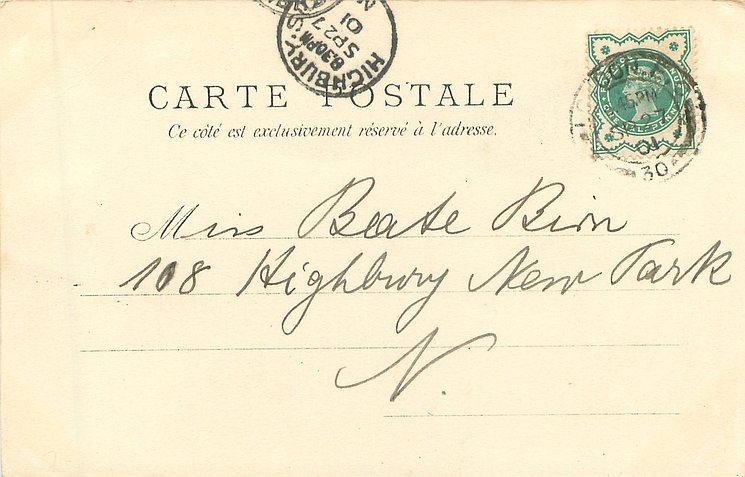 HIGHBURY.S.O
8.30PM
SP 27
01
N
CARTE POSTALE
Ce côté est exclusivement réservé à l'adresse.
LONDON
45PM
01
30
Miss Beate Bion
108 Highbury New Park
N.